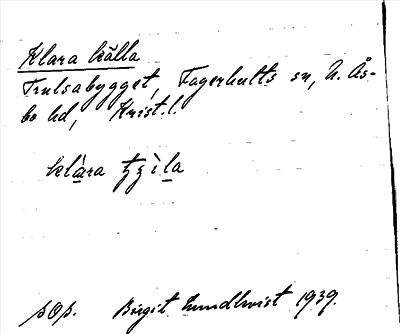 Klara källa
Trulsabygget, Fagerhults sn, N. Ås-
bo hd, Krist. l.
klàra
sOp. Birgit Lundkvist 1939.